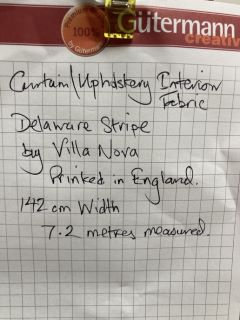 100%
by Gütermann
Gütermann
creativ
Curtain/Upholstery Interior
Fabric
Delaware Stripe
by Villa Nova
Prinked in England.
142 cm Width
7.2 metres measured.